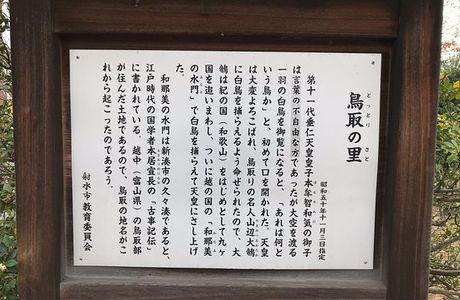 鳥取の里
とっとり さと
昭和五十年十一月三日指定
第十一代垂仁天皇皇子本牟智和気の御子
は言葉の不自由な方であったが大空を渡る
一羽の白鳥を御覧になると、「あれは何と
いう鳥か」と、初めて口を開かれた。天皇
は大変よろこばれ、鳥取りの名人山辺大鶙
に白鳥を捕らえるよう命ぜられたので、大
鶙は紀の国(和歌山)をはじめとして九ヶ
国を追いまわし、ついに越の国の「和那美
の水門」で白鳥を捕らえて天皇にさし上げ
た。
和那美の水門は新湊市の久々湊であると、
江戸時代の国学者本居宣長の「古事記伝」
に書かれている。越中(富山県)の鳥取部
が住んだ土地であるので、鳥取の地名がこ
れから起こったのであろう。
射水市教育委員会